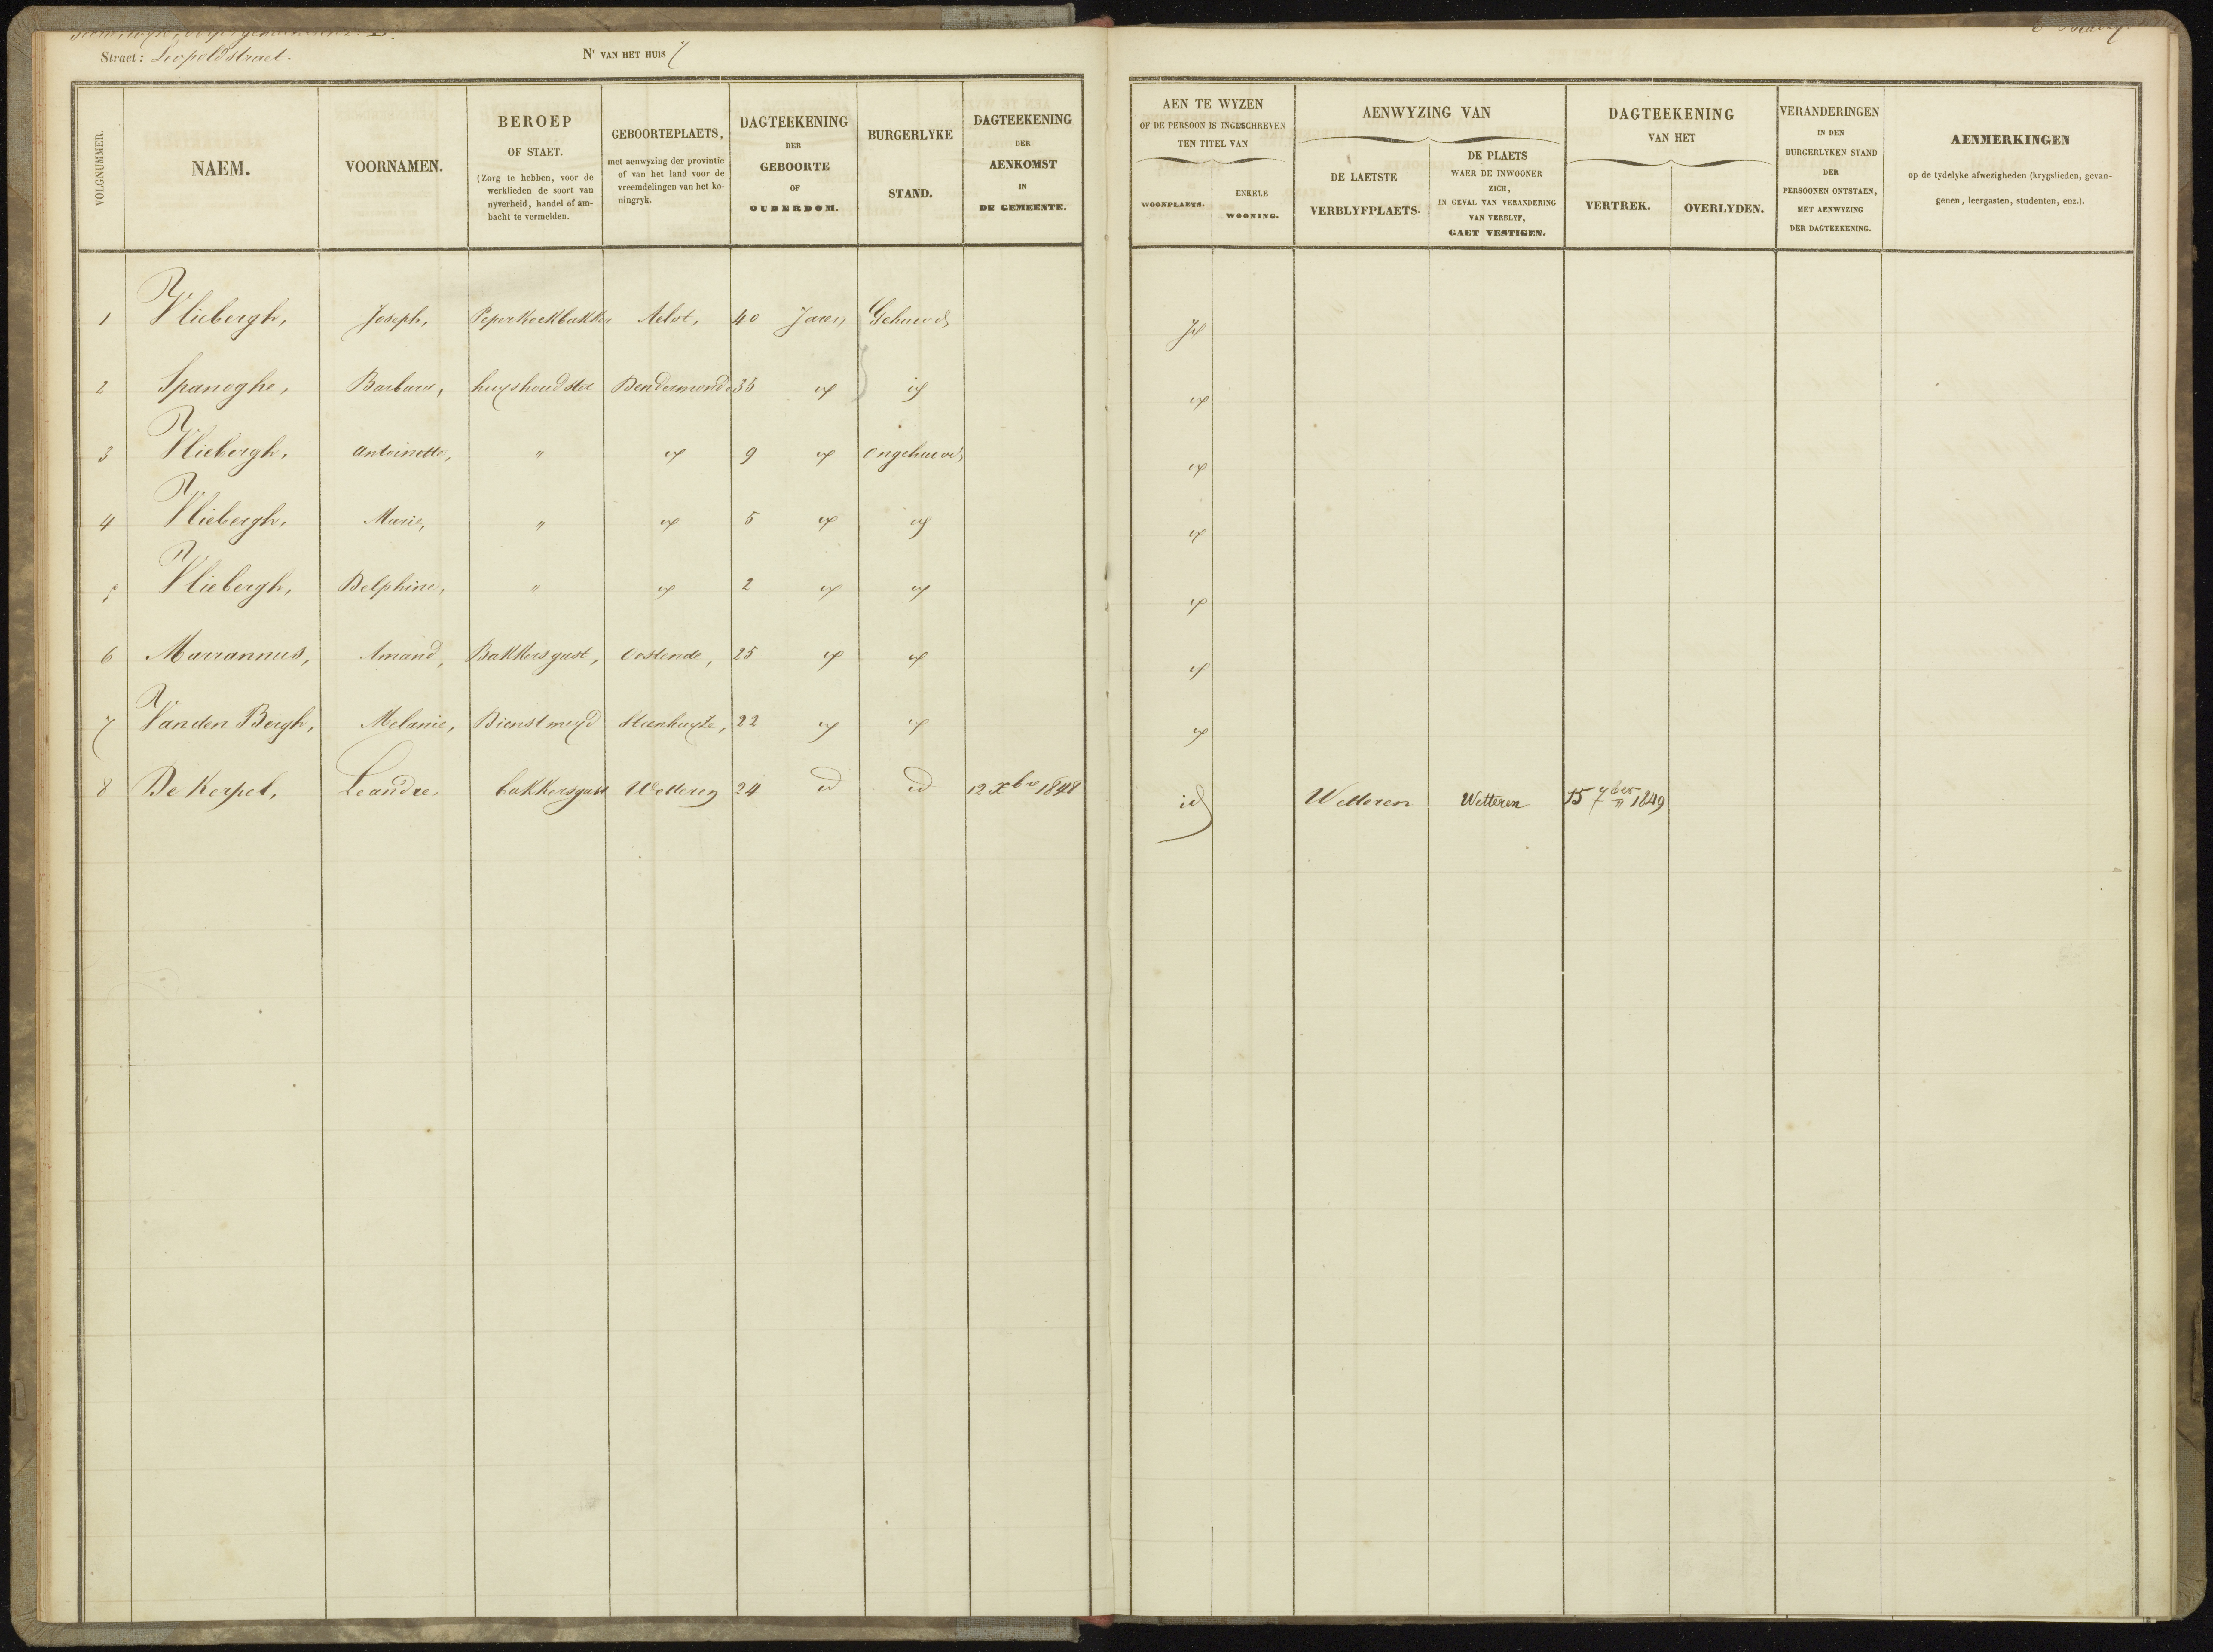 Straet: Leopoldstraet. Nr VAN HET HUIS 7
VOLGNUMMER.
NAEM.
VOORNAMEN.
BEROEP
OF STAET.
(Zorg te hebben, voor de
werklieden de soort van
nyverheid, handel of am-
bacht te vermelden.
GEBOORTEPLAETS,
met aenwyzing der provintie
of van het land voor de
vreemdelingen van het ko-
ningryk.
DAGTEEKENING
DER
GEBOORTE
OF
OUDERDOM.
BURGERLYKE
STAND.
DAGTEEKENING
DER
AENKOMST
IN
DE GEMEENTE.
AEN TE WYZEN
OF DE PERSOON IS INGESCHREVEN
TEN TITEL VAN
WOONPLAETS.
ENKELE
WOONING.
AENWYZING VAN
DE LAETSTE
VERBLYFPLAETS.
DE PLAETS
WAER DE INWOONER
ZICH,
IN GEVAL VAN VERANDERING
VAN VERBLYF,
GAET VESTIGEN.
DAGTEEKENING
VAN HET
VERTREK.
OVERLYDEN.
VERANDERINGEN
IN DEN
BURGERLYKEN STAND
DER
PERSOONEN ONTSTAEN,
MET AENWYZING
DER DAGTEEKENING.
AENMERKINGEN
op de tydelyke afwezigheden (krygslieden, gevan-
genen, leergasten, studenten, enz.).
1 Vliebergh, Joseph, Peperkoekbakker Aelst, 40 Jaren Gehuwd
2 Spanoghe, Barbara, huyshoudster Dendermonde 35 id id id
3 Vliebergh, Antoinette, " id 9 id Ongehuwd id
4 Vliebergh, Marie, " id 5 id id id
5 Vliebergh, Delphine, " id 2 id id id
6 Marrannus, Amand, Bakkersgast, Oostende, 25 id id id
7 Vanden Bergh, Melanie, Dienstmeyd Steenhuyze, 22 id id id
8 De Kerpel, Leandre, bakkersgast Wetteren 24 id id 12 Xbre 1848 id Wetteren Wetteren 15 7ber 1849